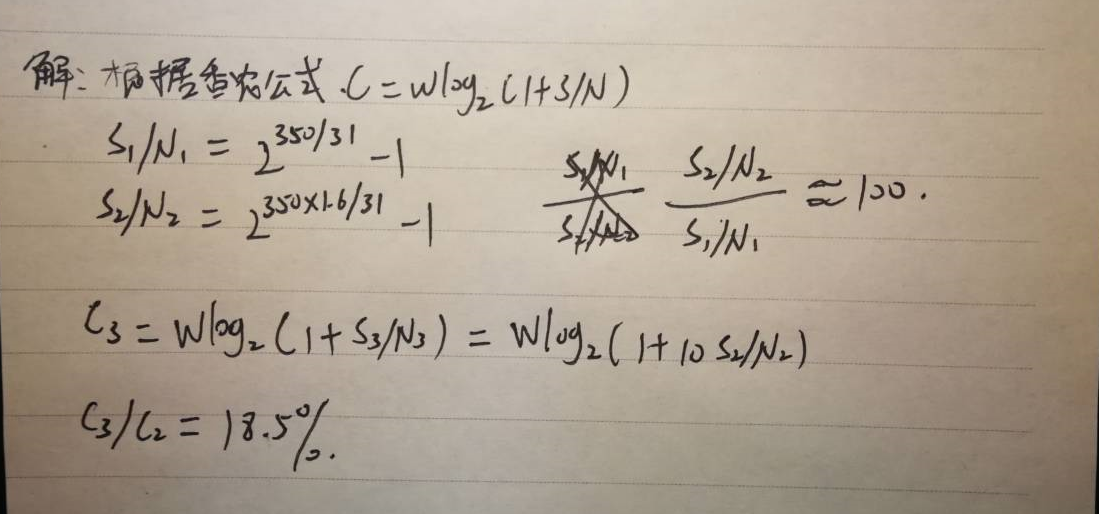 解: 根据香农公式.C=Wlog₂(1+S/N)
S₁/N₁ = 2^{350/31} -1
S₂/N₂ = 2^{350×1.6/31} -1
S₁/N₁ / S₂/N₂
S₂/N₂ / S₁/N₁ ≈100.
C₃ = Wlog₂(1+S₃/N₃) = Wlog₂(1+10 S₂/N₂)
C₃/C₂ = 18.5%.